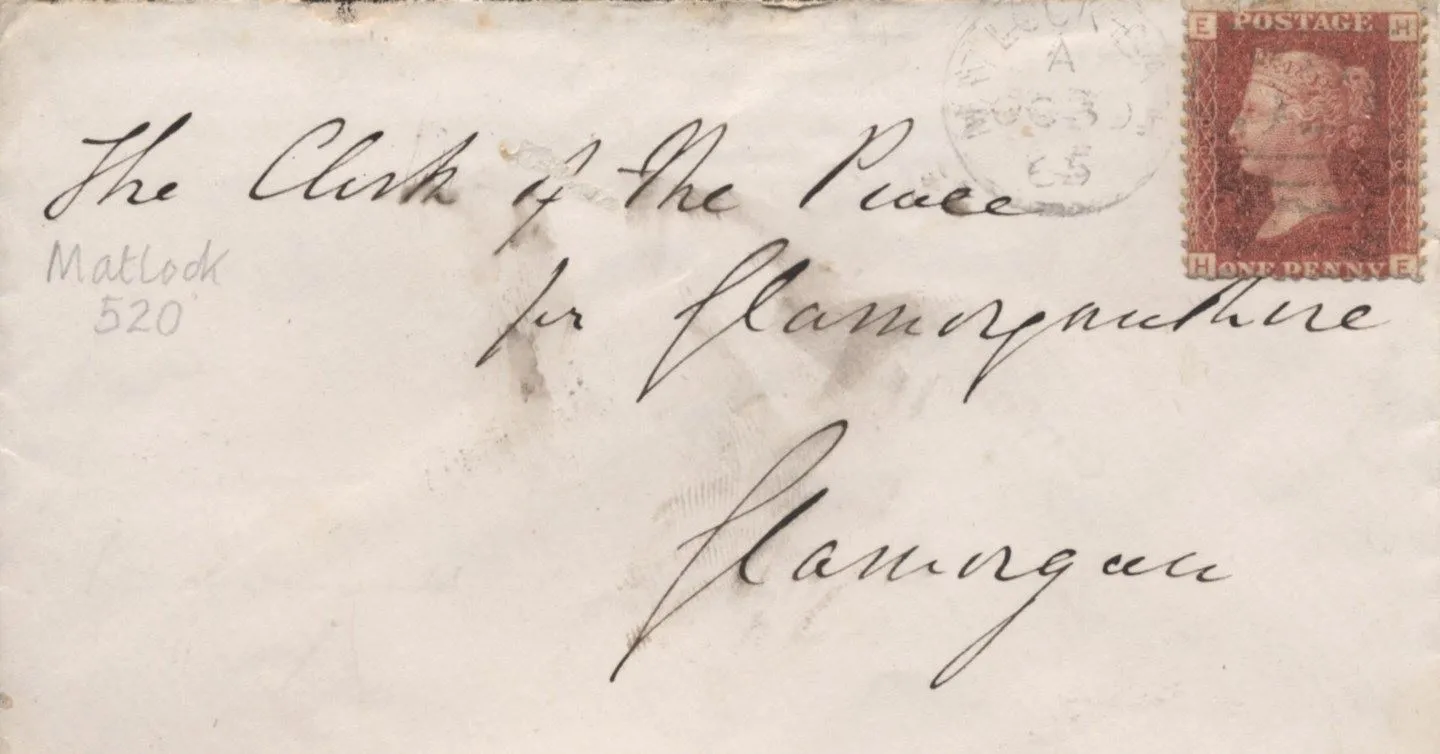 E POSTAGE H
A
65
The Clerk of the Peace
Matlock
520
H ONE PENNY E
for Glamorganshire
Glamorgan